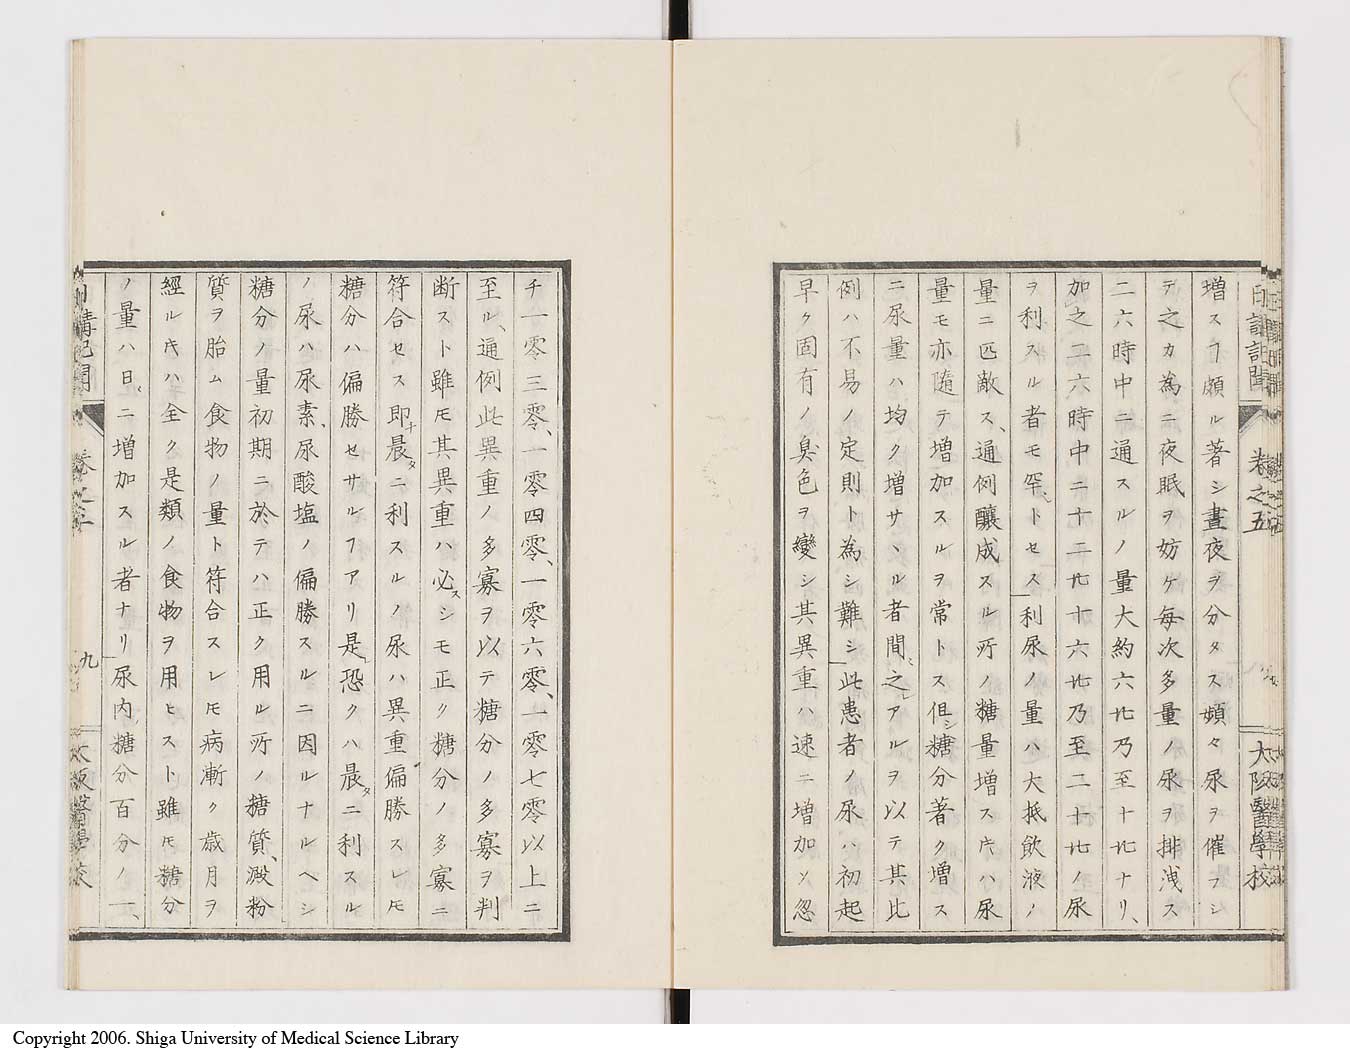 日講記聞 卷之五 大阪醫學校
増スヿ頗ル著シ晝夜ヲ分タス頻々尿ヲ催フシ
テ之カ為ニ夜眠ヲ妨ケ每次多量ノ尿ヲ排洩ス
二六時中ニ通スルノ量大約六㐂乃至十㐂ナリ、
加之二六時中二十二㐂十六㐂乃至二十㐂ノ尿
ヲ利スル者モ罕トセス利尿ノ量ハ大抵飲液ノ
量ニ匹敵ス、通例釀成スル所ノ糖量増ス片ハ尿
量モ亦隨テ増加スルヲ常トス但シ糖分著ク増ス
ニ尿量ハ均ク増サヽル者間之アルヲ以テ其此
例ハ不易ノ定則ト為シ難シ此患者ノ尿ハ初起
早ク固有ノ臭色ヲ變シ其異重ハ速ニ増加ソ忽
チ一零三零、一零四零、一零六零、一零七零以上ニ
至ル、通例此異重ノ多寡ヲ以テ糖分ノ多寡ヲ判
断スト雖モ其異重ハ必スシモ正ク糖分ノ多寡ニ
符合セス即ナ晨タニ利スルノ尿ハ異重偏勝スレモ
糖分ハ偏勝セサルヿアリ是恐クハ晨タニ利スル
ノ尿ハ尿素、尿酸塩ノ偏勝スルニ因ルナルヘシ
糖分ノ量初期ニ於テハ正ク用ル所ノ糖質、澱粉
質ヲ胎ム食物ノ量ト符合スレモ病漸ク歳月ヲ
經ル片ハ全ク是類ノ食物ヲ用ヒスト雖モ糖分
ノ量ハ日ニ増加スル者ナリ尿内糖分百分ノ一、
日講記聞 卷之五 九 大阪醫學校
Copyright 2006. Shiga University of Medical Science Library